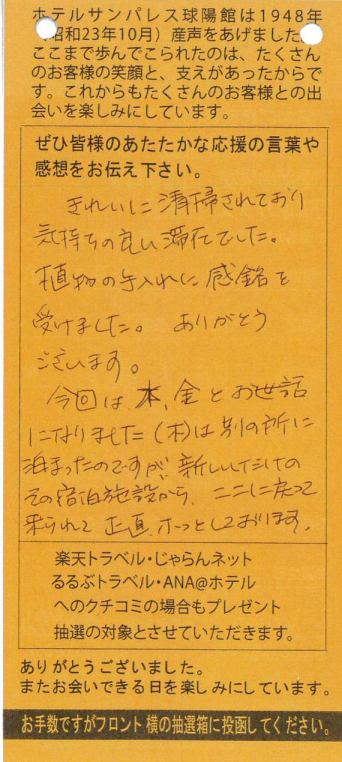 ホテルサンパレス球陽館は1948年
昭和23年10月）産声をあげました
ここまで歩んでこられたのは、たくさん
のお客様の笑顔と、支えがあったからで
す。これからもたくさんのお客様との出
会いを楽しみにしています。
ぜひ皆様のあたたかな応援の言葉や
感想をお伝え下さい。
きれいに清掃されており
気持ちの良い滞在でした。
植物の手入れに感銘を
受けました。 ありがとう
ございます。
今回は、木、金とお世話
になりました（木）は別の所に
泊まったのですが、新しいだけの
その宿泊施設から、ここに戻って
来られて正直、ホっとしております。
楽天トラベル・じゃらんネット
るるぶトラベル・ANA@ホテル
へのクチコミの場合もプレゼント
抽選の対象とさせていただきます。
ありがとうございました。
またお会いできる日を楽しみにしています。
お手数ですがフロント横の抽選箱に投函してください。